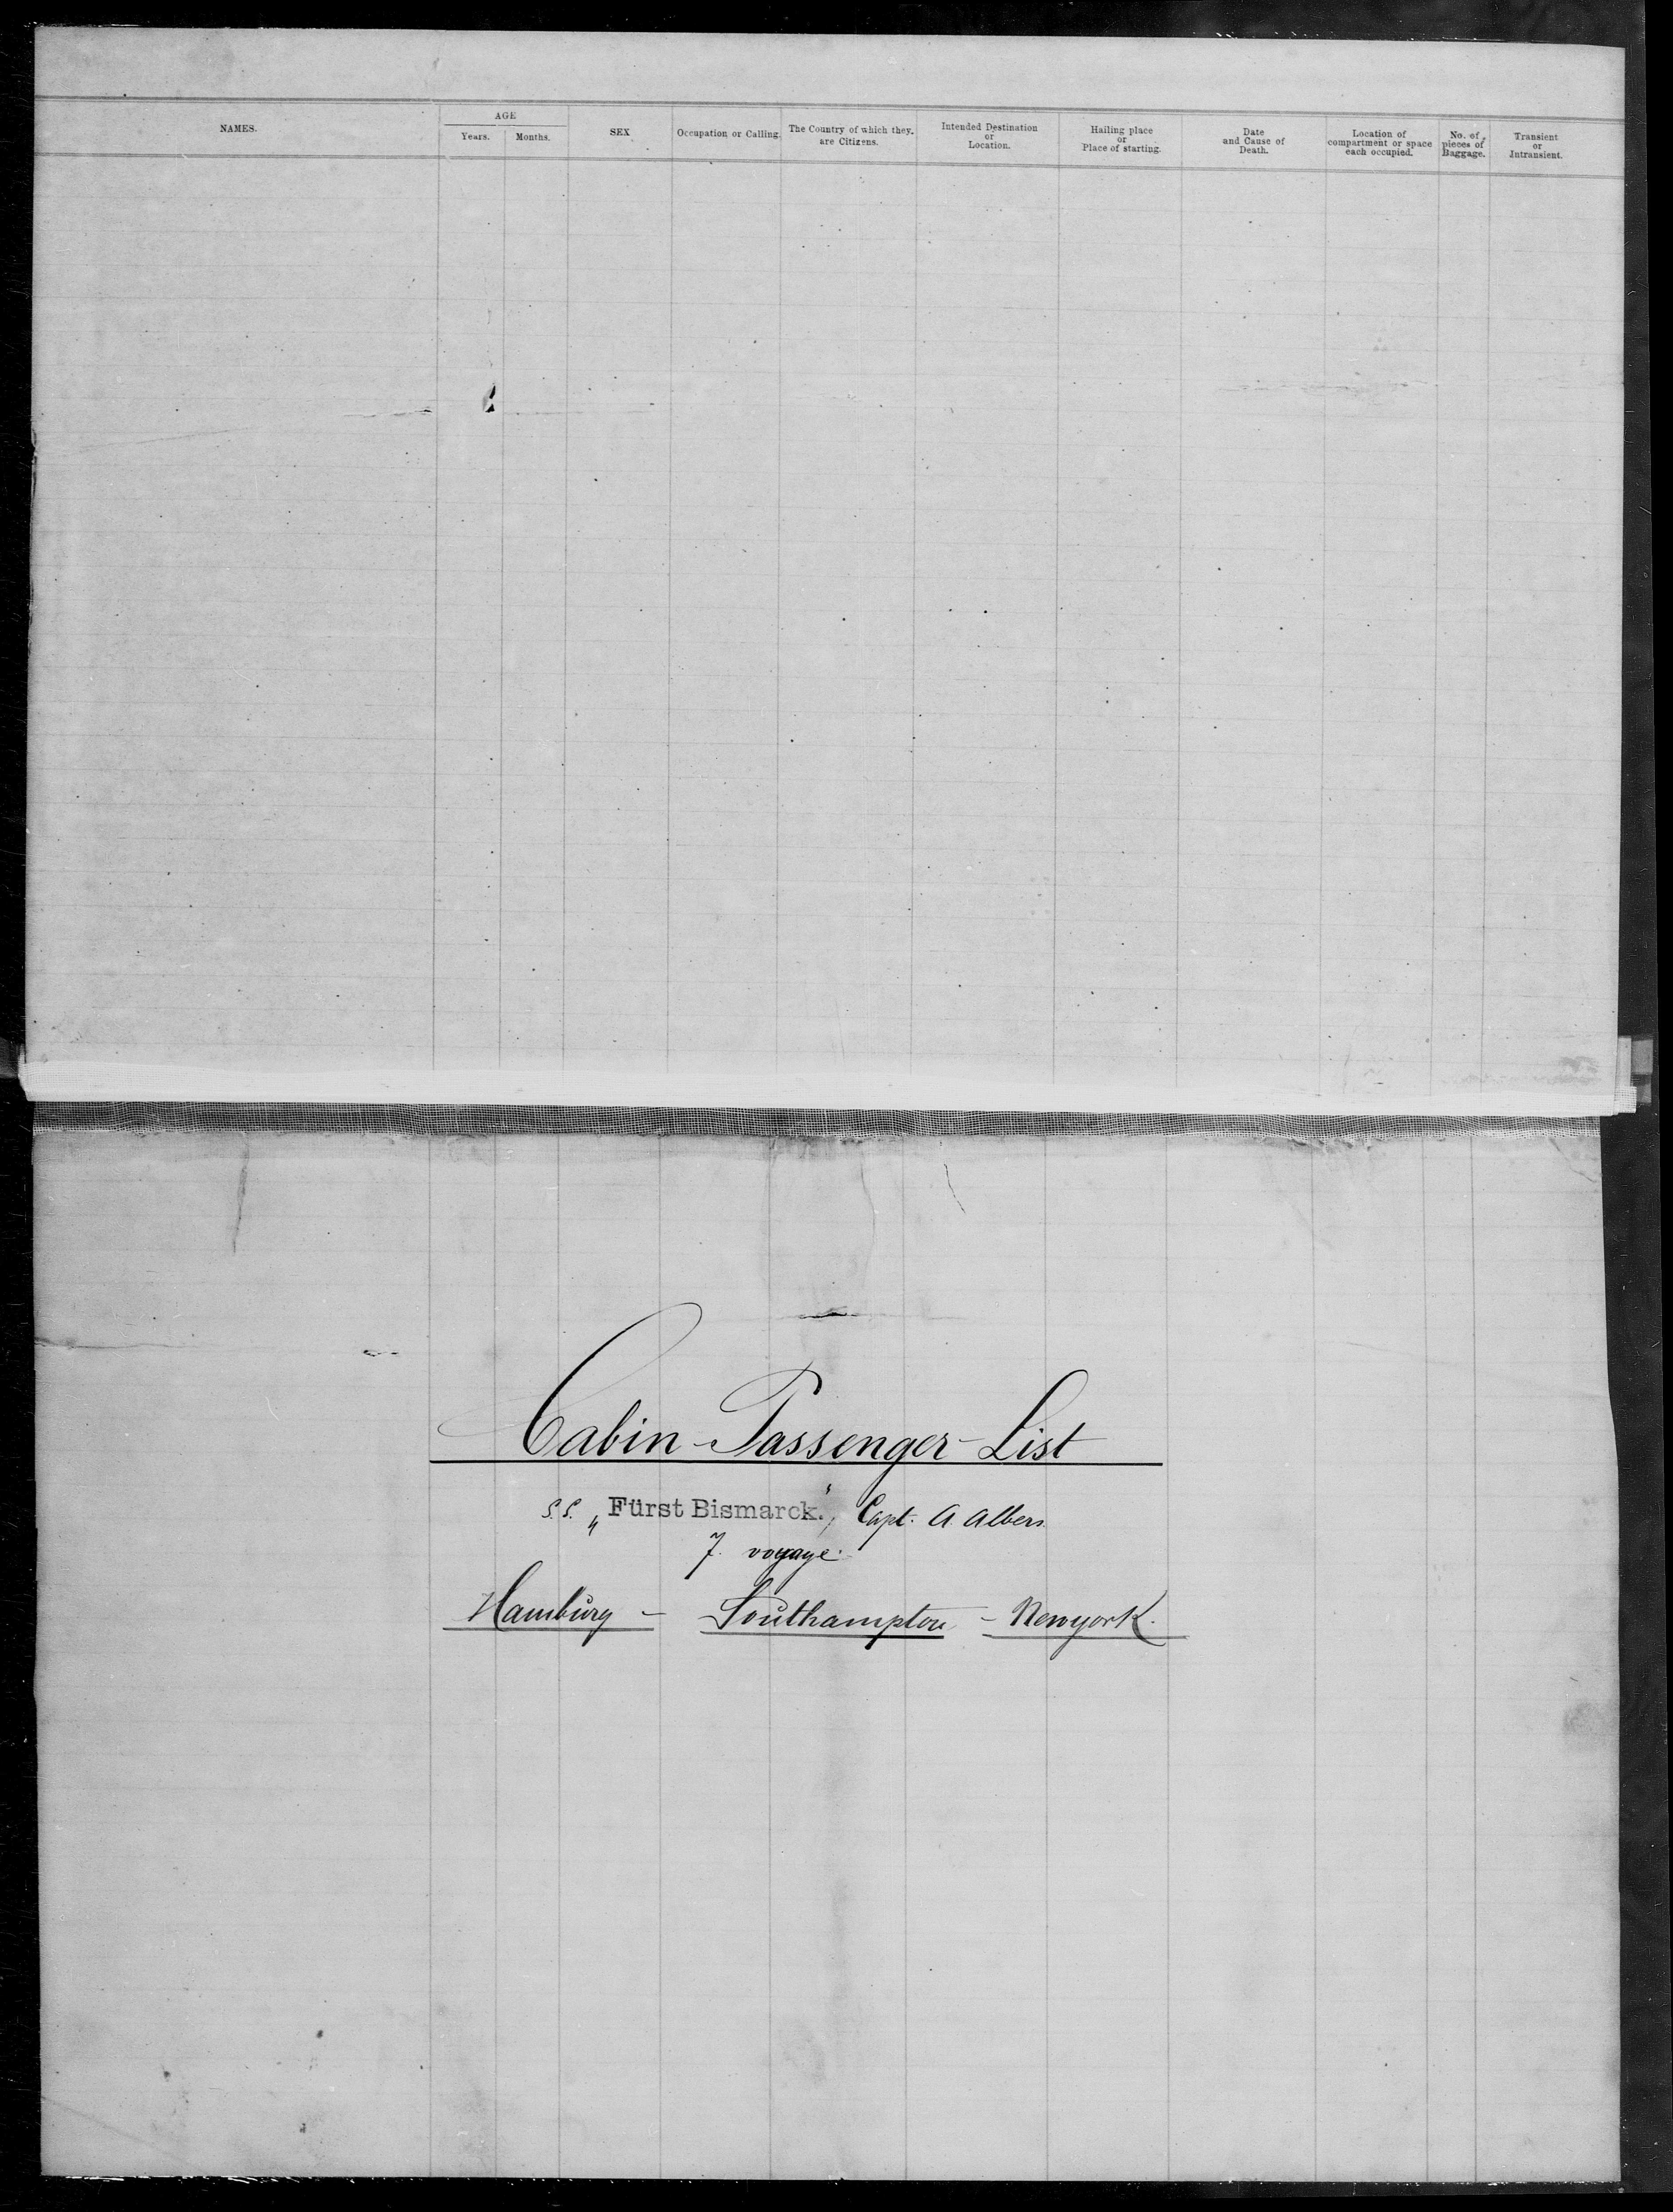 NAMES.
AGE
Years. Months.
SEX
Occupation or Calling.
The Country of which they.
are Citizens.
Intended Destination
or
Location.
Hailing place
or
Place of starting.
Date
and Cause of
Death.
Location of
compartment or space
each occupied.
No. of
pieces of
Baggage.
Transient
or
Intransient.
Cabin-Passenger-List
S.S. „Fürst Bismarck.", Capt. A. Albers.
7. voyage.
Hamburg - Southampton - Newyork.